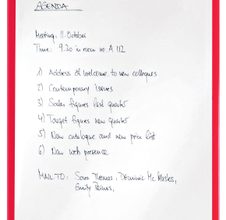 AGENDA
Meeting, 8. October
Time: 9.30 in room no A 112
1) Address of welcome to new collegues
2) Contemporary issues
3) Sales figures last quarter
4) Target figures new quarter
5) New catalogue and new price list
6) New web presence
MAIL TO: Sara Thomas, Dominic Mc
Emily